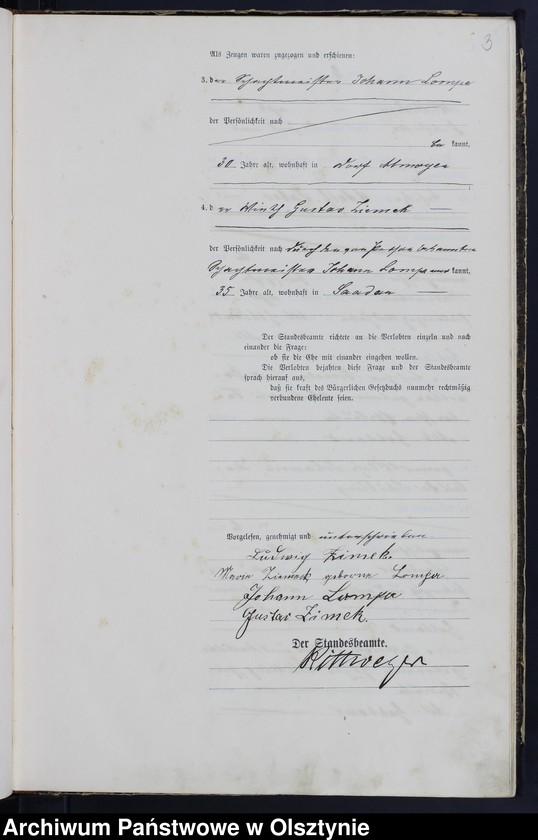 3
Als Zeugen waren zugezogen und erschienen:
3. der Schachtmeister Johann Lompa
der Persönlichkeit nach
be kannt,
30 Jahre alt, wohnhaft in Dorf
4. der Wirth Gustav Ziemek
der Persönlichkeit nach durch den von Person bekannten
Schachtmeister Johann Lompa kannt,
35 Jahre alt, wohnhaft in
Der Standesbeamte richtete an die Verlobten einzeln und nach
einander die Frage:
ob sie die Ehe mit einander eingehen wollen.
Die Verlobten bejahten diese Frage und der Standesbeamte
sprach hierauf aus,
daß sie kraft des Bürgerlichen Gesetzbuchs nunmehr rechtmäßig
verbundene Eheleute seien.
Vorgelesen, genehmigt und unterschrieben
Ludwig Zimek.
Marie Ziemek geborne Lompa
Johann Lompa
Gustav Zimek.
Der Standesbeamte.
Archiwum Państwowe w Olsztynie